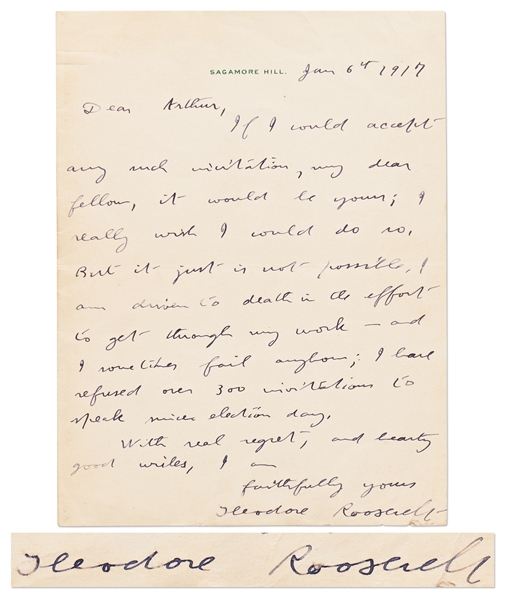 SAGAMORE HILL.
Jan 6th 1917
Dear Arthur,
If I could accept
any such invitation, my dear
fellow, it would be yours; I
really wish I could do so.
But it just is not possible. I
am driven to death in the effort
to get through my work – and
I sometimes fail anyhow; I have
refused over 300 invitations to
speak since election day.
With real regret, and hearty
good wishes, I am
faithfully yours
Theodore Roosevelt
Theodore Roosevelt